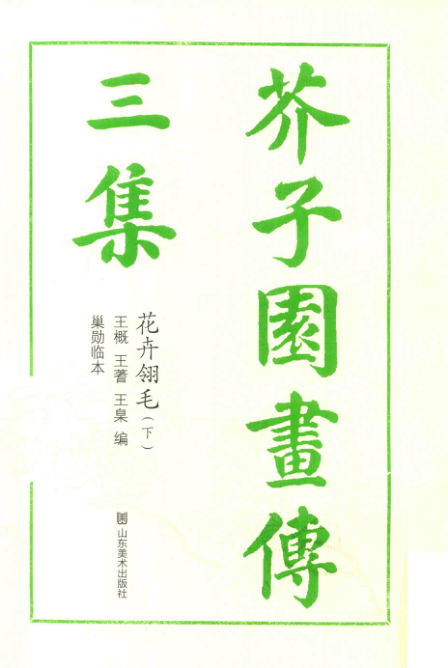 芥子園畫傳
三集
花卉翎毛（下）
王概 王蓍 王臬 编
巢勋临本
山东美术出版社